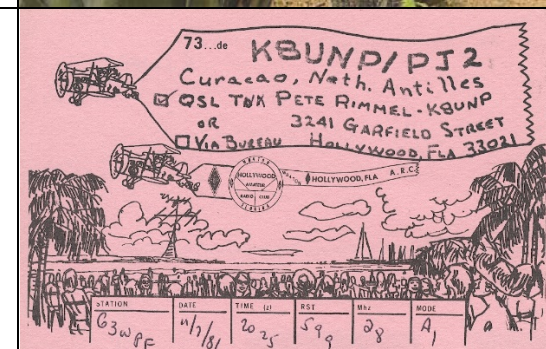 73...de K8UNP/PJ2
Curacao, Neth. Antilles
☑ QSL TNX PETE RIMMEL - K8UNP
OR 3241 GARFIELD STREET
☐ VIA BUREAU HOLLYWOOD, FLA 33021
HOLLYWOOD
AMATEUR
RADIO CLUB
FLORIDA
HOLLYWOOD, FLA A.R.C.
STATION DATE TIME (z) RST Mhz MODE
G3WPF 20 25 599 28 A1